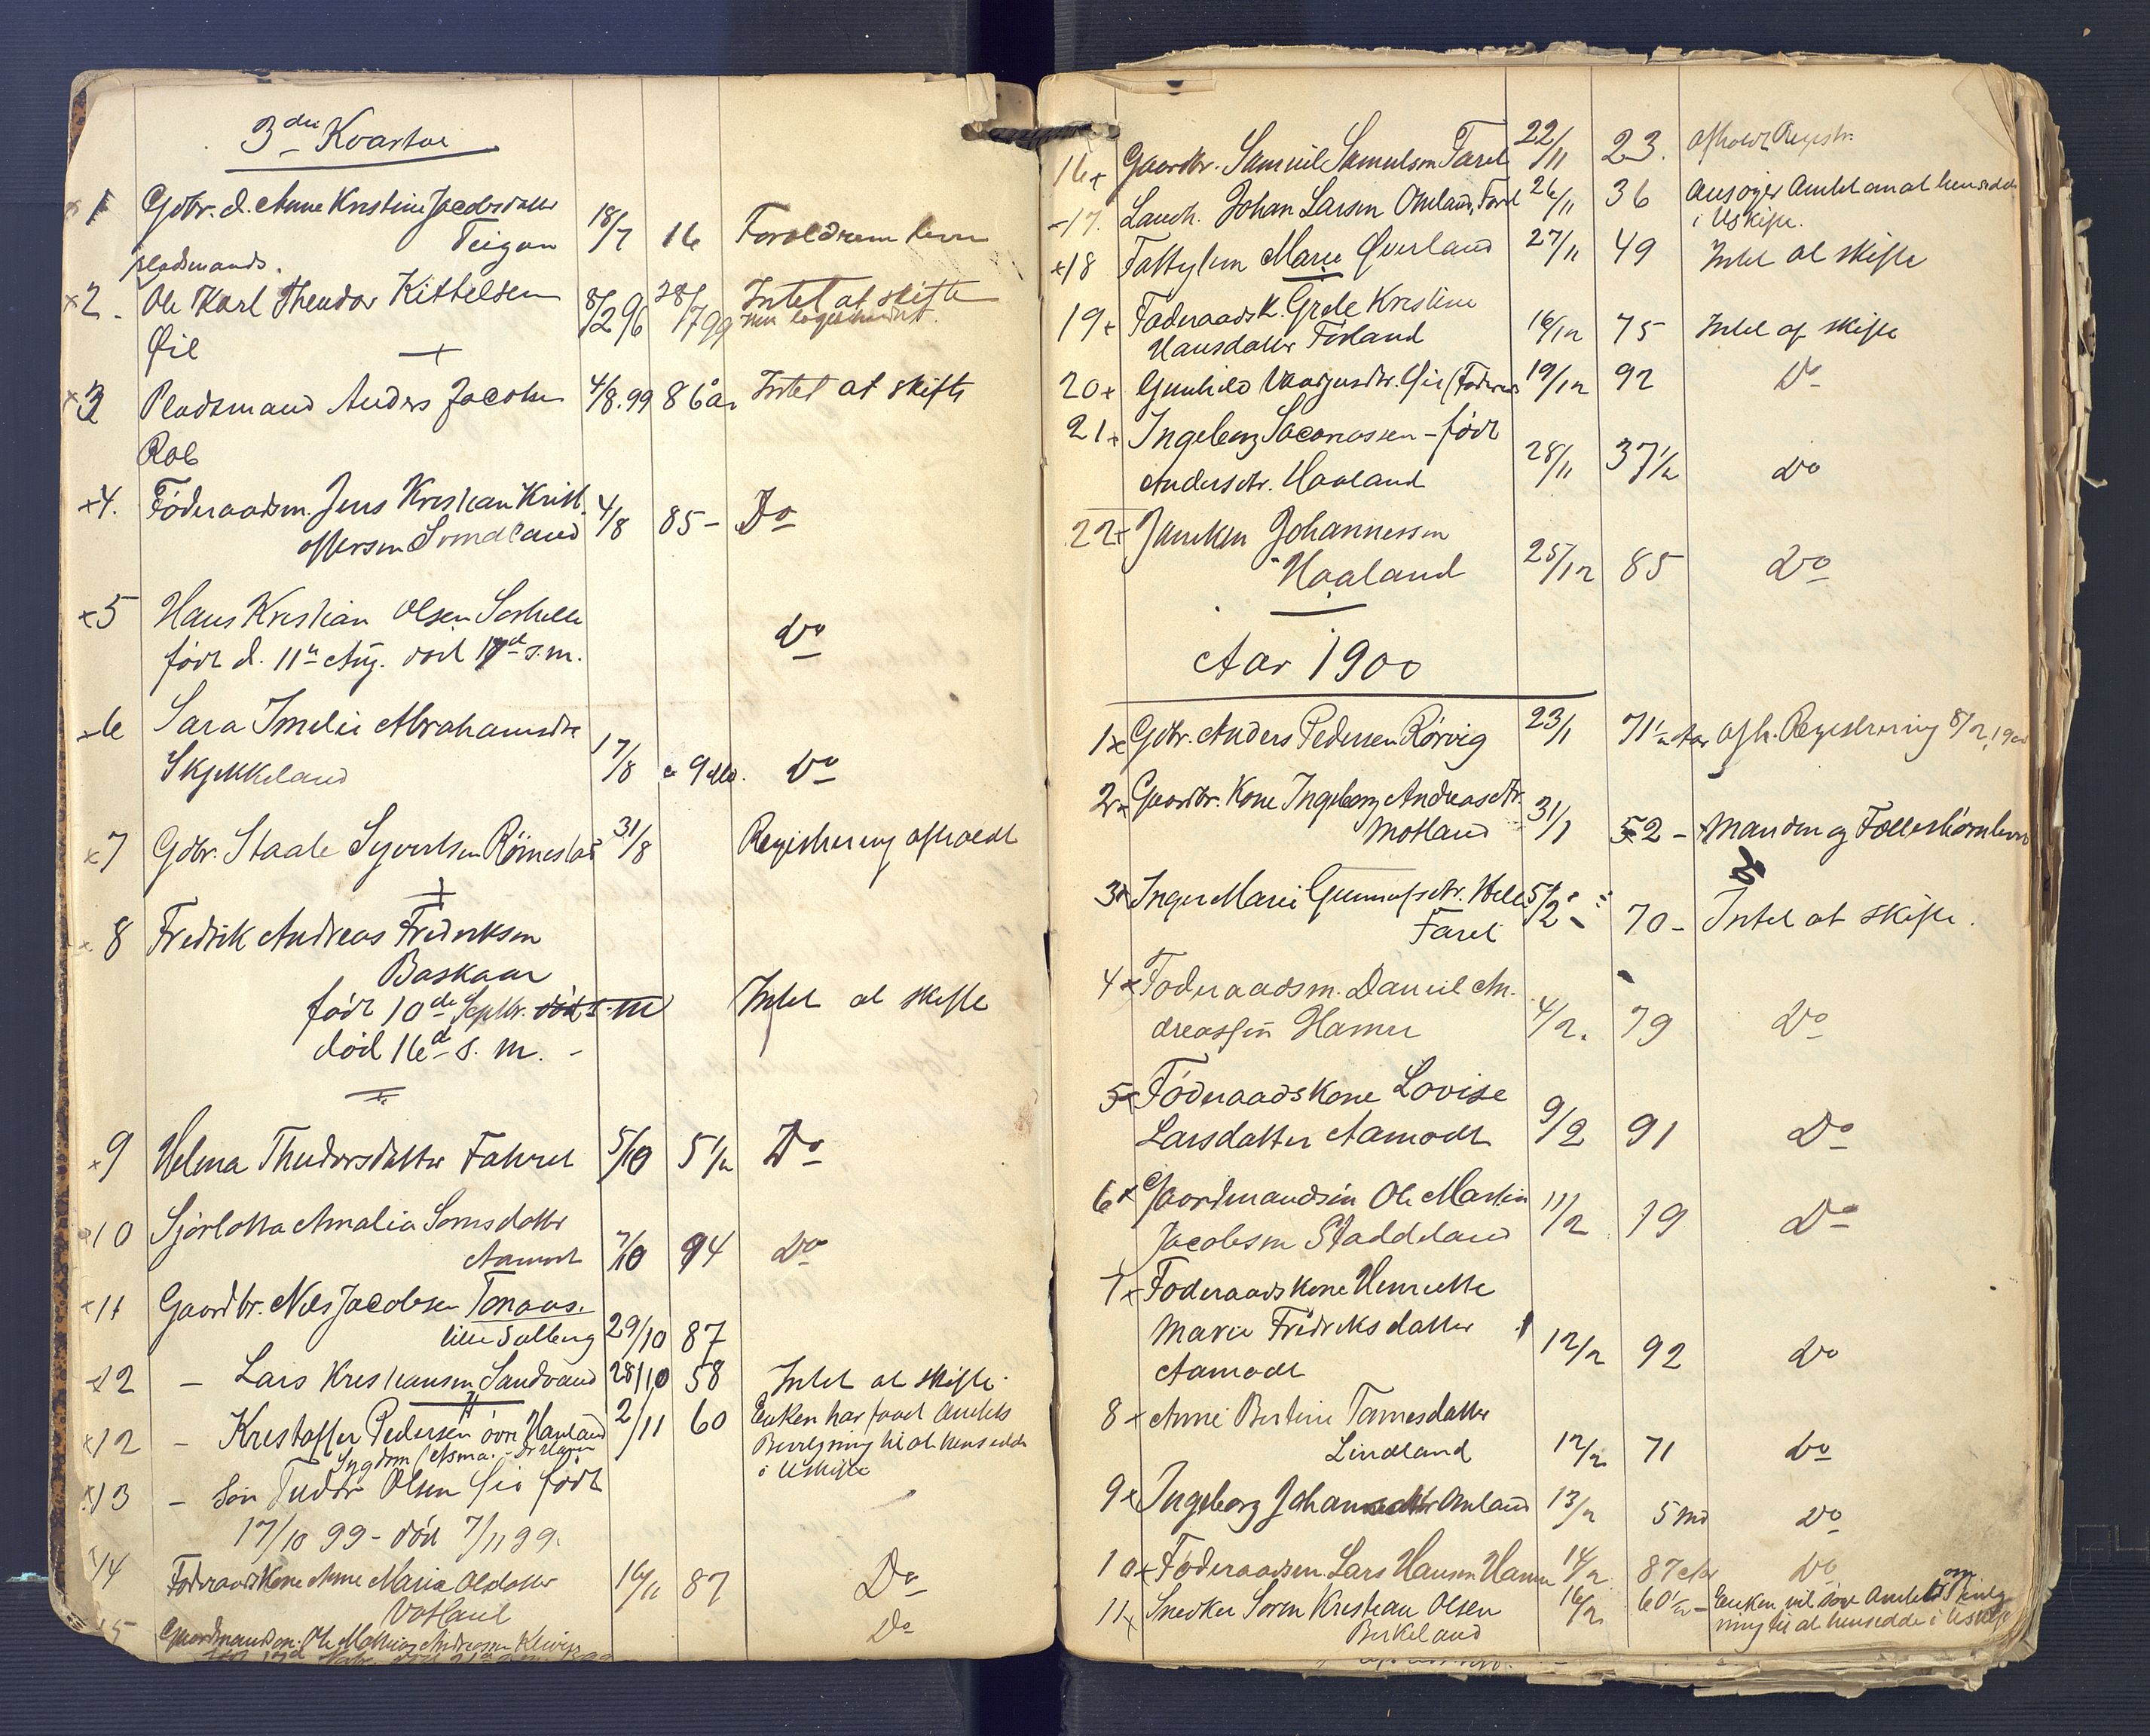 3die Kvartal
x 1 Gdbr. d. Anne Kristine Jacobsdatter
Teigen 18/7 16 Forældrene lever
pladsmands.
x2. Ole Karl Theodor Kittelsen 8/2 96 28/7 99 Intet at skifte
Øie
x3 Pladsmand Anders Jacobs 4/8.99 86 år Intet at skifte
Rob
x4. Föderaadsm. Jens Kristian Krist
offersen Svindland 4/8 85 - Do
x5 Hans Kristian Olsen
født d. 11te Aug. död 17d s. m. Do
x6 Sara Emelie Abrahamsdtr
Skjekkeland 17/8 Do
x7 Gdbr. Staale Syvertsen Römeslad 31/8 Registrering afholdt
x 8 Fredrik Andreas Fredriksen
Baskaar
født 10de Septbr. död s. m Intet at skifte
död 16d s. m. -
x9 Helma Theodorsdatter Fahret 5/10 5 1/2 Do
x10 Sjarlotta Amalia Sornsdatter
Aamodt 7/10 94 Do
x11 Gaardbr. Nils Jacobsen Tonaas.
lille Salberg 29/10 87
x12 - Lars Kristiansen Sandvand 28/10 58 Intet at skifte.
x12 - Kristoffer Pedersen övre Haaland 2/11 60 Enken har faaet Amtets
Bevilgning til at hensidde
i Uskifte
Sygdom (Asma.
x13 - Sön Tudor Olsen Øie født
17/10 99 - död 7/11 99.
x14 Föderaadskone Anne Maria Olsdatter
16/11 87 Do
15 Gaardmandsön. Ole Mathias Andreasen Do
16x Gaardbr. Samuel Samuelsen Faret 22/11 23. afholdt Registr.
x17. Laudh. Johan Larsen Omland, Faret 26/11 36 Ansøger Amtet om at hensidde
i Uskifte.
x18 Fattiglem Marie Qverland 27/11 49 Intet at skifte
19x Föderaadsk. Grete Kristine
Hansdatter Förland 16/12 75 Intet at skifte
20x Gunhild Øie (Föderaad 19/12 92 Do
21x Ingeborg Zacariassen - født
Andersdtr. Haaland 28/11 37 1/2 Do
22x Johannessen
Haaland 25/12 85 Do
Aar 1900
1x Gdbr. Anders Pedersen Rörvig 23/1 71 1/2 Aar Afh. Registrering 8/2 1900
2x Gaardbr. Kone Ingeborg Andreasdtr.
Motland 31/1 52 - Manden og Fællesbörn lever
3x Inger Marie Gunnufsdtr. Helle
Faret 5/2 70 - Intet at skifte.
4x Föderaadsm. Daniel An-
dreassen Hamre 4/2. 79 Do
5x Föderaadskone Lovise
Larsdatter Aamodt 9/2 91 Do
6x Gaardmandsön Ole Martin
Jacobsen Staddeland 11/2 19 Do
7x Föderaadskone Henriette
Marie Fredriksdatter
Aamodt 12/2 92 Do
8x Anne Bertine Tomesdatter
Lindland 12/2 71 Do
9x Ingeborg Omland 13/2 5 Md Do
10x Föderaadsm. Lars Hansen Hamre 14/2 87 Aar Do
11x Snedker Sören Kristian Olsen 16/2 60 1/2 - Enken vil søge Amtet om
Birkeland til at hensidde i Uskifte